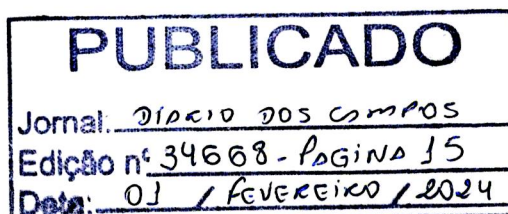 PUBLICADO
Jornal: DIARIO DOS CAMPOS
Edição nº 34668 - PAGINA 15
Data: 01 / FEVEREIRO / 2024